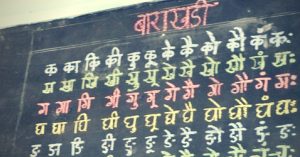 बाराखडी
क का कि की कु कू के कै को कौ कं कः
ख खा खि खी खु खू खे खै खो खौ खं खः
ग गा गि गी गु गू गे गै गो गौ गं गः
घ घा घि घी घु घू घे घै घो घौ घं घः
ङ ङा ङि ङी ङु ङू ङे ङै ङो ङौ ङं ङः